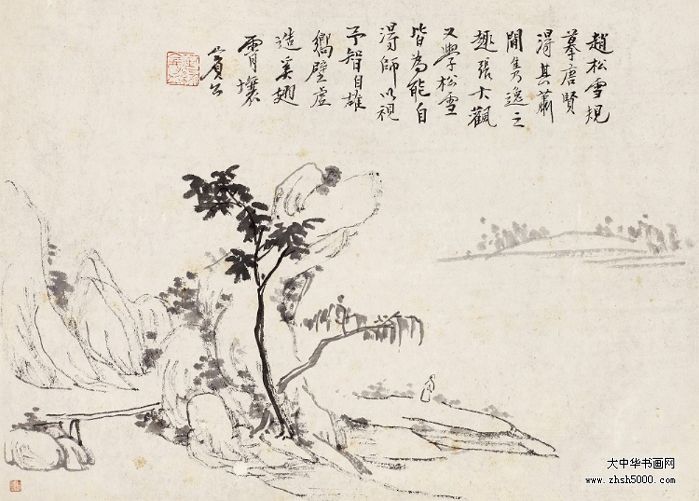 趙松雪規
摹唐賢
得其蕭
閒雋逸之
趣張大觀
又學松雪
皆為能自
得師以視
予智自雄
嚮壁虛
造奚翅
霄壤
賓公
大中华书画网
www.zhsh5000.com